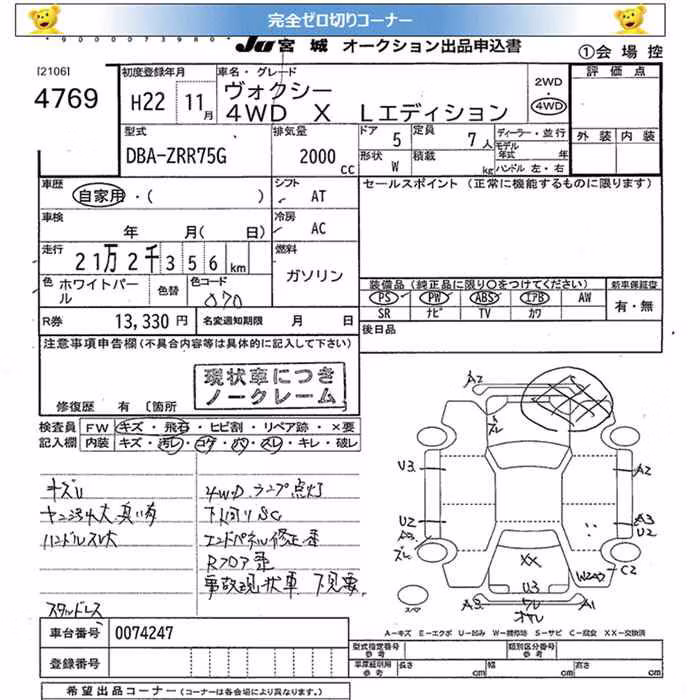 完全ゼロ切りコーナー
0000073980
JU宮城 オークション出品申込書
①会場控
[2106]
4769
初度登録年月
H22 11月
車名・グレード
ヴォクシー
4WD X Lエディション
2WD
4WD
評価点
外装 内装
型式
DBA-ZRR75G
排気量
2000 CC
ドア 5
定員 7人
形状 W
積載 kg
ディーラー・並行
モデル年式 年
ハンドル 左・右
車歴
自家用・( )
シフト AT
セールスポイント (正常に機能するものに限ります)
車検 年 月( 日)
冷房 AC
走行
21万2千356km
燃料
ガソリン
色 ホワイトパール
色替
色コード 070
装備品(純正品に限り○をつけてください)
新車保証書
PS PW ABS エアB AW
SR ナビ TV カワ
有・無
R券 13,330円
名変通知期限 月 日
後日品
注意事項申告欄(不具合内容等は具体的に記入して下さい)
現状車につき
ノークレーム
修復歴 有 〔箇所
検査員記入欄
FW キズ・飛石・ヒビ割・リペア跡・×要
内装 キズ・汚レ・コゲ・穴・スレ・キレ・破レ
キズU
ハンドルスレ大
スタッドレス
4WDランプ点灯
下回りSC
エンドパネル修正歪
Rフロア歪
事故現状車 下見要
A2
U3
A2
U2
A3
U2
XX
U3
W2
C2
A3
A1
スペア
A-キズ E-エクボ U-凹み W-補修跡 S-サビ C-腐食 XX-交換済
車台番号 0074247
登録番号
型式指定番号 参考
類別区分番号 参考
車庫証明用 参考 長さ cm 幅 cm 高さ cm
希望出品コーナー (コーナーは各会場により異なります。)